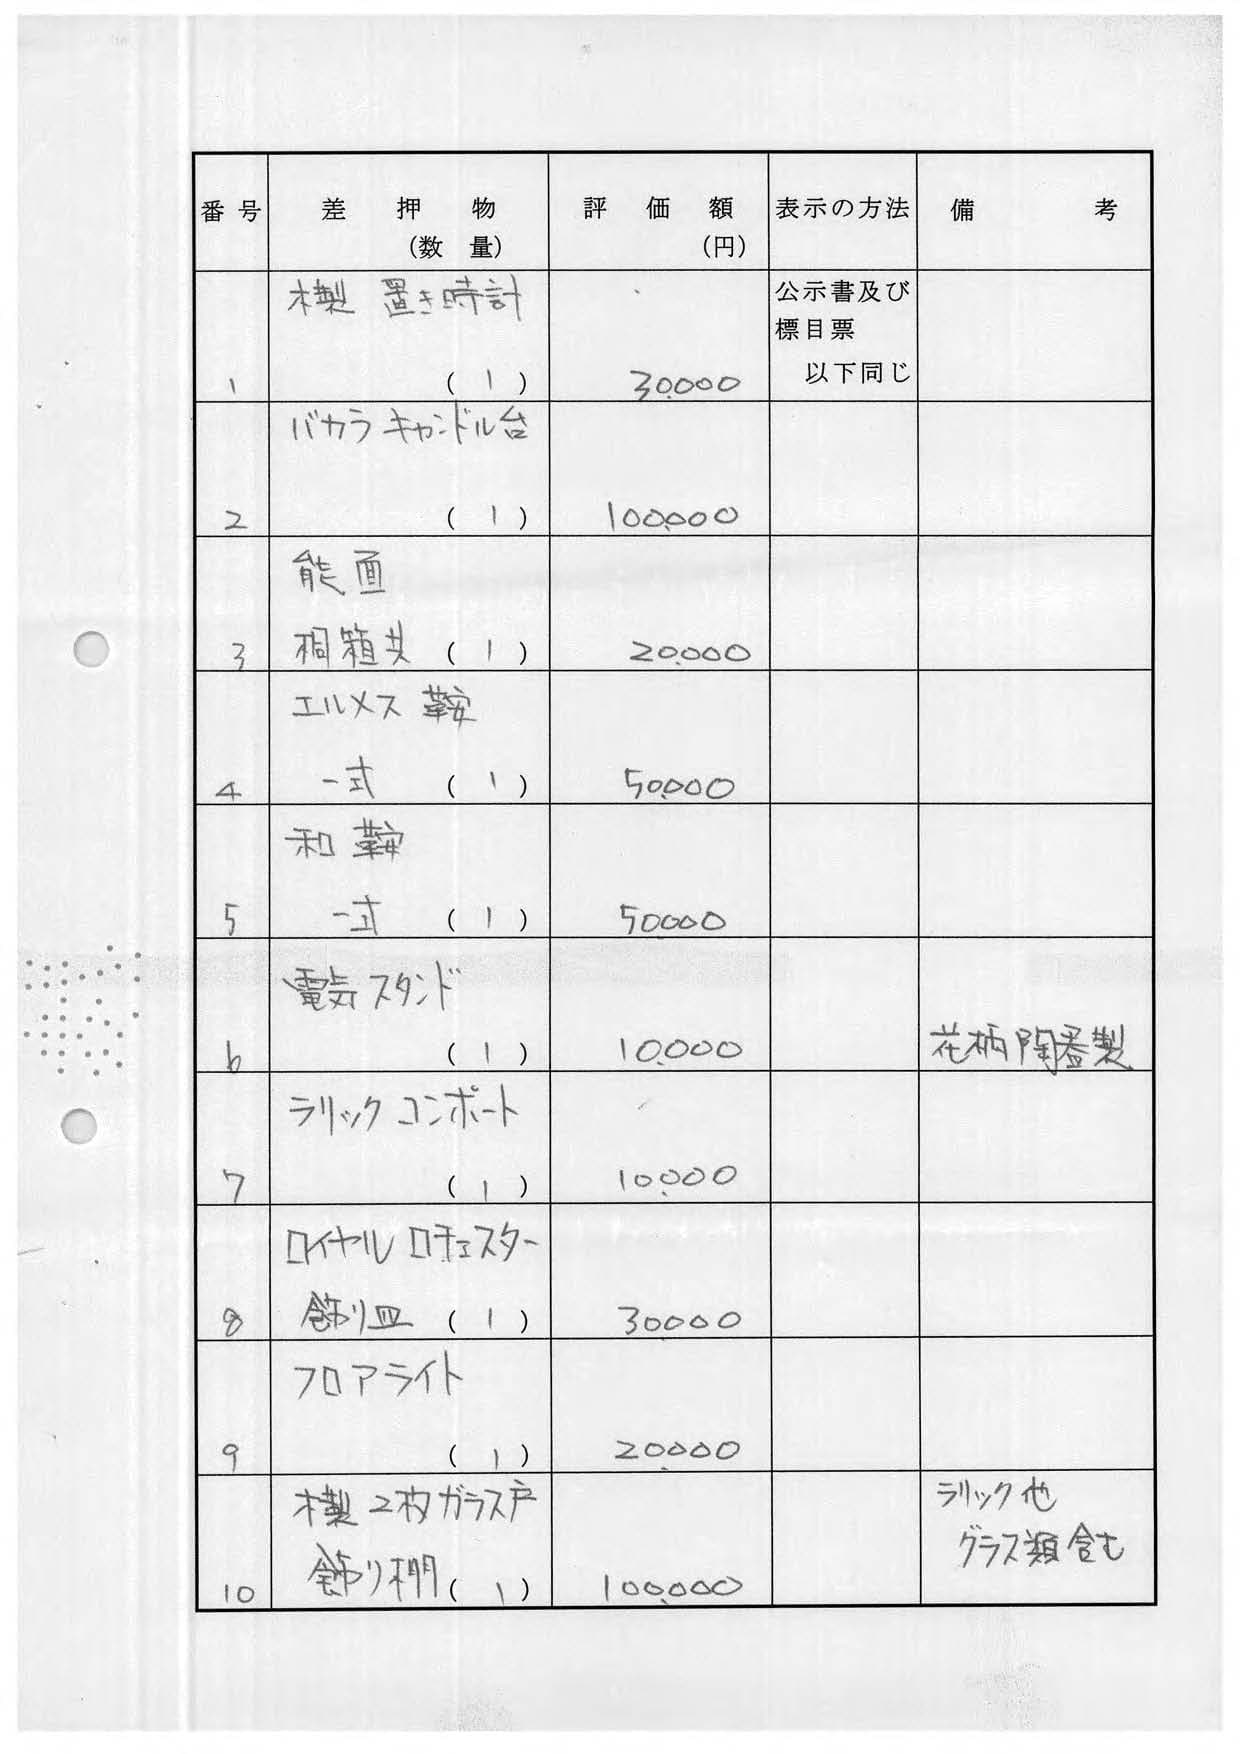 番号 差押物 評価額 表示の方法 備考
(数量) (円)
木製 置き時計 公示書及び
標目票
1 (1) 30,000 以下同じ
バカラ キャンドル台
2 (1) 100,000
能面
3 桐箱共 (1) 20,000
エルメス 鞍
4 一式 (1) 50,000
和鞍
5 一式 (1) 50,000
電気スタンド
6 (1) 10,000 花柄陶器製
ラリック コンポート
7 (1) 10,000
ロイヤル ロチェスター
8 飾り皿 (1) 30,000
フロアライト
9 (1) 20,000
木製 2枚ガラス戸 ラリック他
グラス類含む
10 飾り棚 (1) 100,000